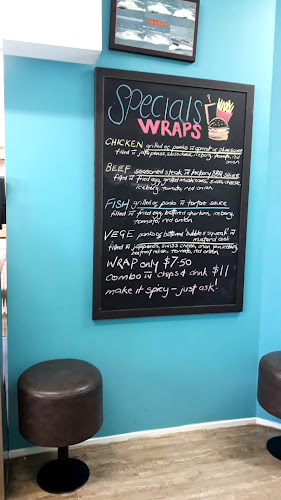 Specials
WRAPS
CHICKEN grilled or panko w apricot or plum sauce
filled w jalapenos, swiss cheese, iceberg, tomato, red
onion
BEEF seasoned steak w hickory BBQ sauce
filled w fried egg, grilled mushrooms, swiss cheese,
iceberg, tomato, red onion
FISH grilled or panko w tartare sauce
filled w fried egg, battered gherkin, iceberg,
tomato, red onion
VEGE panko or battered "bubble & squeak" w
mustard
filled w jalapenos, swiss cheese, onion,
beetroot relish, tomato, red onion
WRAP only $7.50
combo w chips & drink $11
make it spicy - just ask!